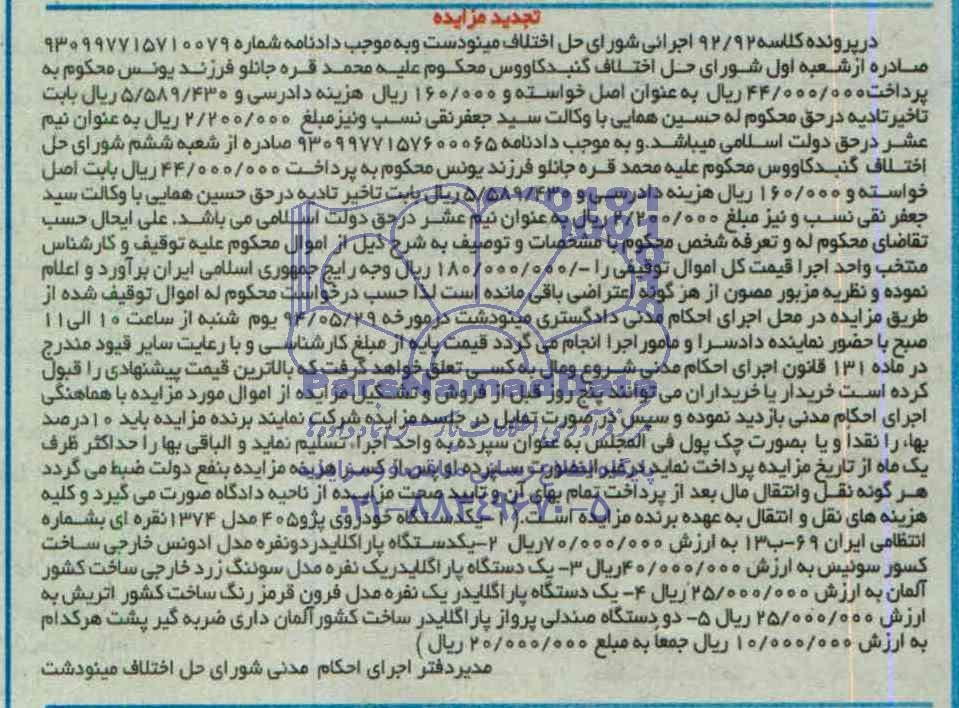 تجدید مزایده
در پرونده کلاسه ۹۲/۹۲ اجرائی شورای حل اختلاف مینودست و به موجب دادنامه شماره ۹۳۰۹۹۷۷۱۵۷۱۰۰۷۹
صادره از شعبه اول شورای حل اختلاف گنبدکاووس محکوم علیه محمد قره جانلو فرزند یونس محکوم به
پرداخت ۴۴/۰۰۰/۰۰۰ ریال به عنوان اصل خواسته و ۱۶۰/۰۰۰ ریال هزینه دادرسی و ۵/۵۸۹/۴۳۰ ریال بابت
تاخیر تادیه در حق محکوم له حسین همایی با وکالت سید جعفر نقی نسب و نیز مبلغ ۲/۲۰۰/۰۰۰ ریال به عنوان نیم
عشر در حق دولت اسلامی میباشد. و به موجب دادنامه ۹۳۰۹۹۷۷۱۵۷۶۰۰۰۶۵ صادره از شعبه ششم شورای حل
اختلاف گنبدکاووس محکوم علیه محمد قره جانلو فرزند یونس محکوم به پرداخت ۴۴/۰۰۰/۰۰۰ ریال بابت اصل
خواسته و ۱۶۰/۰۰۰ ریال هزینه دادرسی و ۵/۵۸۹/۴۳۰ ریال بابت تاخیر تادیه در حق حسین همایی با وکالت سید
جعفر نقی نسب و نیز مبلغ ۲/۲۰۰/۰۰۰ ریال به عنوان نیم عشر در حق دولت اسلامی می باشد. علی ایحال حسب
تقاضای محکوم له و تعرفه شخص محکوم با مشخصات و توصیف به شرح ذیل از اموال محکوم علیه توقیف و کارشناس
منتخب واحد اجرا قیمت کل اموال توقیفی را -/۱۸۰/۰۰۰/۰۰۰ ریال وجه رایج جمهوری اسلامی ایران برآورد و اعلام
نموده و نظریه مزبور مصون از هر گونه اعتراضی باقی مانده است لذا حسب درخواست محکوم له اموال توقیف شده از
طریق مزایده در محل اجرای احکام مدنی دادگستری مینودشت در مورخه ۹۴/۰۵/۲۹ یوم شنبه از ساعت ۱۰ الی ۱۱
صبح با حضور نماینده دادسرا و مامور اجرا انجام می گردد قیمت پایه از مبلغ کارشناسی و با رعایت سایر قیود مندرج
در ماده ۱۳۱ قانون اجرای احکام مدنی شروع و مال به کسی تعلق خواهد گرفت که بالاترین قیمت پیشنهادی را قبول
کرده است خریدار یا خریداران می توانند پنج روز قبل از فروش و تشکیل مزایده از اموال مورد مزایده با هماهنگی
اجرای احکام مدنی بازدید نموده و سپس در صورت تمایل در جلسه مزایده شرکت نمایند برنده مزایده باید ۱۰ درصد
بها، را نقدا و یا بصورت چک پول فی المجلس به عنوان سپرده به واحد اجرا، تسلیم نماید و الباقی بها را حداکثر ظرف
یک ماه از تاریخ مزایده پرداخت نماید در غیر اینصورت سپرده او پس از کسر هزینه مزایده بنفع دولت ضبط می گردد
هر گونه نقل و انتقال مال بعد از پرداخت تمام بهای آن و تایید صحت مزایده از ناحیه دادگاه صورت می گیرد و کلیه
هزینه های نقل و انتقال به عهده برنده مزایده است. ( ۱- یکدستگاه خودروی پژو ۴۰۵ مدل ۱۳۷۴ نقره ای بشماره
انتظامی ایران ۶۹-ب۱۳ به ارزش ۷۰/۰۰۰/۰۰۰ ریال ۲-یکدستگاه پاراگلایدر دونفره مدل ادونس خارجی ساخت
کسور سوئیس به ارزش ۴۰/۰۰۰/۰۰۰ ریال ۳- یک دستگاه پاراگلایدر یک نفره مدل سوننگ زرد خارجی ساخت کشور
آلمان به ارزش ۲۵/۰۰۰/۰۰۰ ریال ۴- یک دستگاه پاراگلایدر یک نفره مدل فرون قرمز رنگ ساخت کشور اتریش به
ارزش ۲۵/۰۰۰/۰۰۰ ریال ۵- دو دستگاه صندلی پرواز پاراگلایدر ساخت کشور آلمان داری ضربه گیر پشت هرکدام
به ارزش ۱۰/۰۰۰/۰۰۰ ریال جمعا به مبلغ ۲۰/۰۰۰/۰۰۰ ریال )
مدیر دفتر اجرای احکام مدنی شورای حل اختلاف مینودشت
ParsNamadData
۰۲۱-۸۸۳۴۹۶۷۰-۵